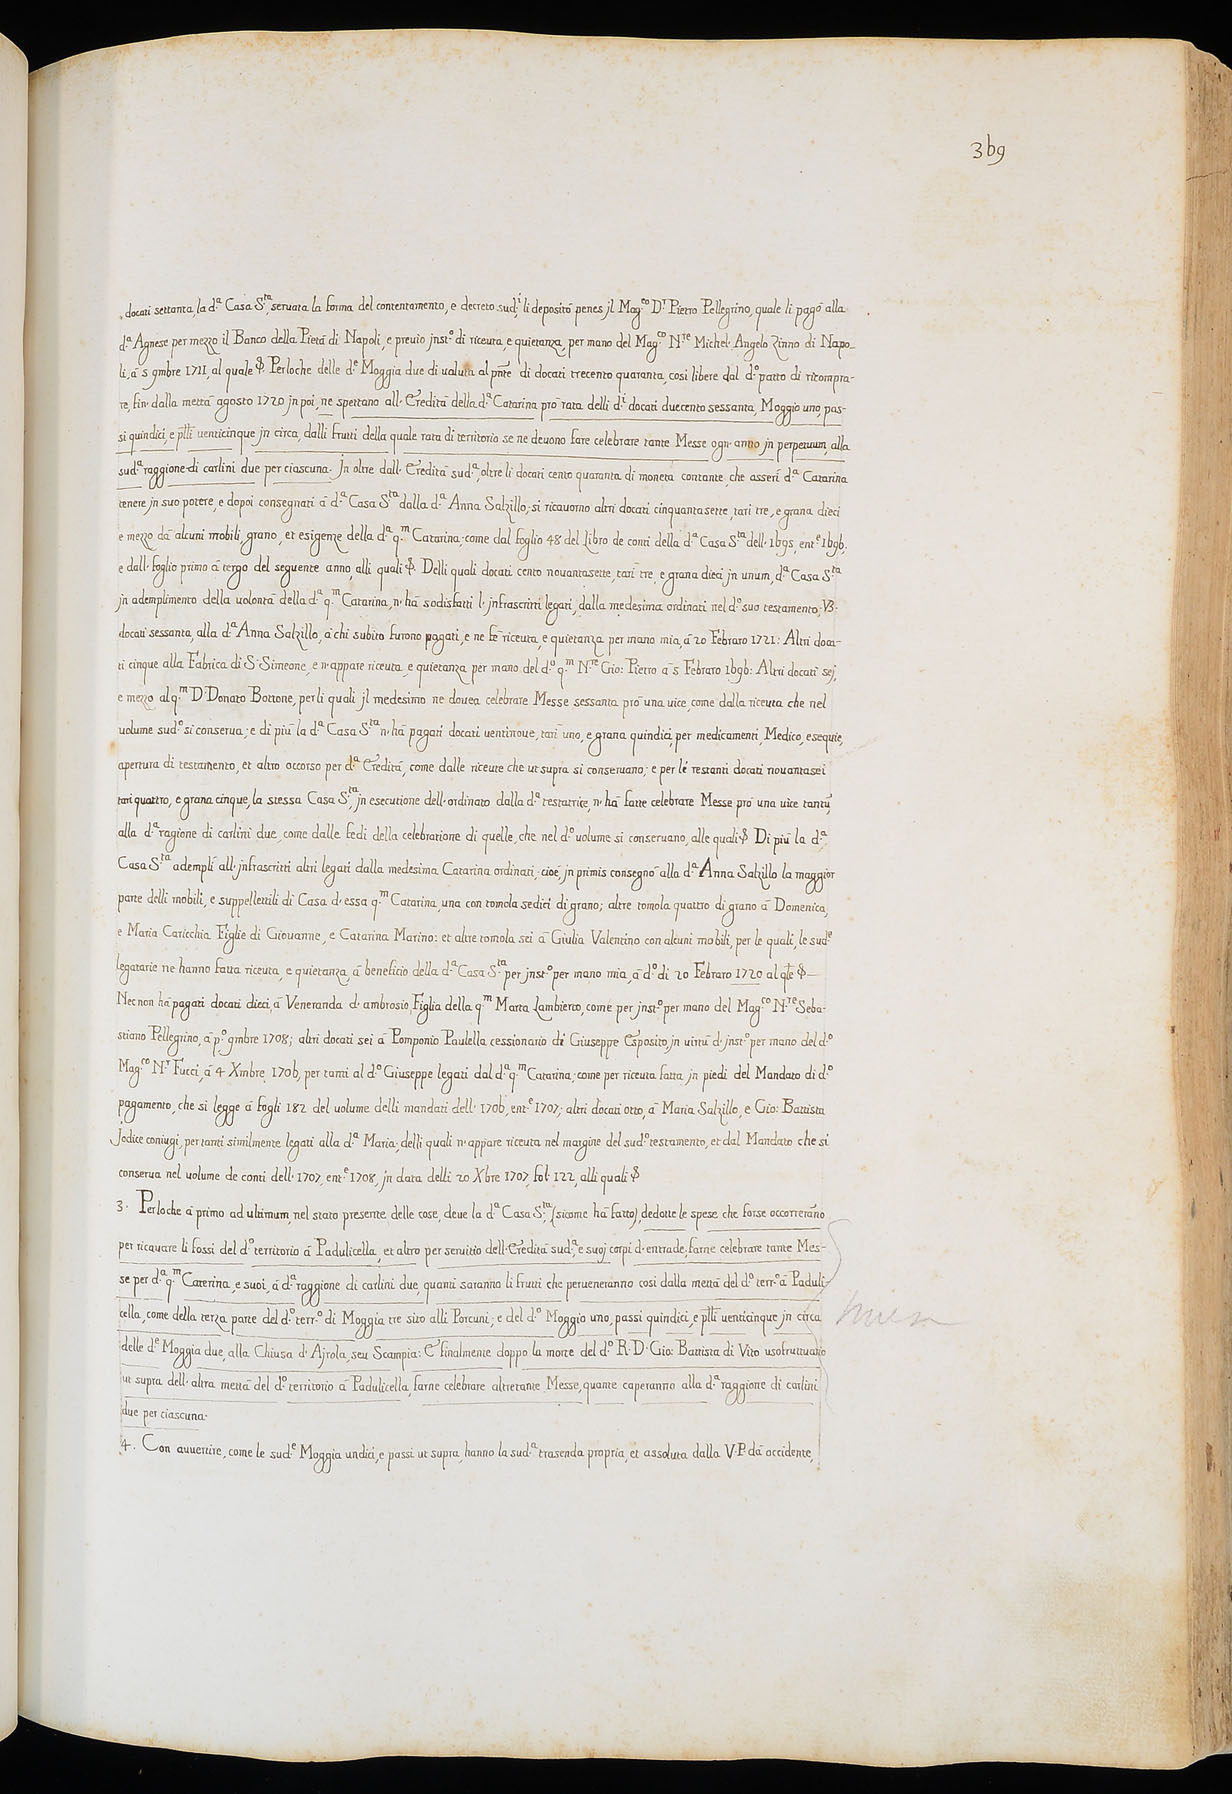 369
docati settanta, la d.ª Casa S.ta, seruata la forma del contentamento, e decreto sud.i, li depositò penes jl Mag.co D.r Pietro Pellegrino, quale li pagò alla
d.ª Agnese per mezzo il Banco della Pietà di Napoli, e preuio jnst.o di riceuta, e quietanza, per mano del Mag.co N.re Michel' Angelo Zinno di Napo-
li, à 5 9mbre 1711, al quale &. Perloche delle d.e Moggia due di ualuta al pnte di docati trecento quaranta, così libere dal d.o patto di ricompra-
re, fin' dalla mettà agosto 1720 jn poi, ne spettano all' Eredità della d.ª Catarina prò rata delli d.i docati duecento sessanta, Moggio uno, pas-
si quindici, e ptti uenticinque jn circa, dalli frutti della quale rata di territorio se ne deuono fare celebrare tante Messe ogn' anno jn perpetuum, alla
sud.ª raggione di carlini due per ciascuna. Jn oltre dall' Eredità sud.ª, oltre li docati cento quaranta di moneta contante, che asserì d.ª Catarina
tenere jn suo potere, e dopoi consegnati à d.ª Casa S.ta dalla d.ª Anna Salzillo, si ricauorno altri docati cinquantasette, tari tre, e grana dieci
e mezzo dà alcuni mobili, grano, et esigenze della d.ª q.m Catarina, come dal foglio 48 del Libro de conti della d.ª Casa S.ta dell' 1695, ent.e 1696,
e dall' foglio primo à tergo del seguente anno, alli quali &. Delli quali docati cento nouantasette, tarì tre, e grana dieci jn unum, d.ª Casa S.ta
jn adempimento della uolontà della d.ª q.m Catarina, n' hà sodisfatti l' jnfrascritti legati, dalla medesima ordinati nel d.o suo testamento, VƷ:
docati sessanta, alla d.ª Anna Salzillo, à chi subito furono pagati, e ne fè riceuta, e quietanza per mano mia, à 20 Febraro 1721: Altri doca-
ti cinque alla Fabrica di S. Simeone, e n' appare riceuta, e quietanza per mano del d.o q.m N.re Gio: Pietro à 5 Febraro 1696: Altri docati sej,
e mezzo al q.m D. Donato Bottone, per li quali jl medesimo ne douea celebrare Messe sessanta prò una uice, come dalla riceuta che nel
uolume sud.o si conserua; e di più la d.ª Casa S.ta n' hà pagati docati uentinoue, tarì uno, e grana quindici, per medicamenti, Medico, esequie,
apertura di testamento, et altro occorso per d.ª Eredità, come dalle riceute che ut supra si conseruano; e per le restanti docati nouantasei
tarì quattro, e grana cinque, la stessa Casa S.ta, jn esecutione dell' ordinato dalla d.ª testatrice, n' hà fatte celebrare Messe prò una uice tantũ,
alla d.ª ragione di carlini due, come dalle fedi della celebratione di quelle, che nel d.o uolume si conseruano, alle quali &. Di più la d.ª
Casa S.ta adempì all' jnfrascritti altri legati dalla medesima Catarina ordinati, cioè, jn primis consegnò alla d.ª Anna Salzillo la maggior
parte delli mobili, e suppellettili di Casa d' essa q.m Catarina, una con tomola sedici di grano; altre tomola quattro di grano à Domenica,
e Maria Caricchia Figlie di Giouanne, e Catarina Marino: et altre tomola sei à Giulia Valentino con alcuni mobili, per le quali, le sud.e
legatarie ne hanno fatta riceuta, e quietanza, à beneficio della d.ª Casa S.ta per jnst.o per mano mia, à d.o dì 20 Febraro 1720 al qle &.
Nec non hà pagati docati dieci, à Veneranda d' ambrosio, Figlia della q.m Marta Lambierto, come per jnst.o per mano del Mag.co N.re Seba-
stiano Pellegrino, à p.o 9mbre 1708; altri docati sei à Pomponio Paulella cessionario di Giuseppe Esposito, jn uirtù d' jnst.o per mano del d.o
Mag.co N.r Fucci, à 4 Xmbre 1706, per tanti al d.o Giuseppe legati dal d.ª q.m Catarina; come per riceuta fatta jn piedi del Mandato di d.o
pagamento, che si legge à fogli 182 del uolume delli mandati dell' 1706, ent.e 1707; altri docati otto, à Maria Salzillo, e Gio: Battista
Jodice coniugi, per tanti similmente legati alla d.ª Maria; delli quali n' appare riceuta nel margine del sud.o testamento, et dal Mandato che si
conserua nel uolume de conti dell' 1707, ent.e 1708, jn data delli 20 Xbre 1707, fol. 122, alli quali &
3. Perloche à primo ad ultimum, nel stato presente delle cose, deue la d.ª Casa S.ta, (sicome hà fatto), dedotte le spese che forse occorreranno
per ricauare li fossi del d.o territorio à Padulicella, et altro per seruitio dell' Eredità sud.ª, e suoj corpi d' entrade, farne celebrare tante Mes-
se per d.ª q.m Caterina, e suoi, à d.ª raggione di carlini due, quanti saranno li frutti che perueneranno così dalla mettà del d.o terr.o à Paduli-
cella, come della terza parte del d.o terr.o di Moggia tre sito alli Porcuni; e del d.o Moggio uno, passi quindici, e ptti uenticinque jn circa
delle d.e Moggia due, alla Chiusa d' Ajrola, seu Scampia: E finalmente doppo la morte del d.o R. D. Gio: Battista di Vito usofruttuario
ut supra dell' altra mettà del d.o territorio à Padulicella, farne celebrare altretante Messe, quante caperanno alla d.ª raggione di carlini
due per ciascuna.
4. Con auuertire, come le sud.e Moggia undici, e passi ut supra, hanno la sud.ª trasenda propria, et assoluta dalla V. P. dà occidente,